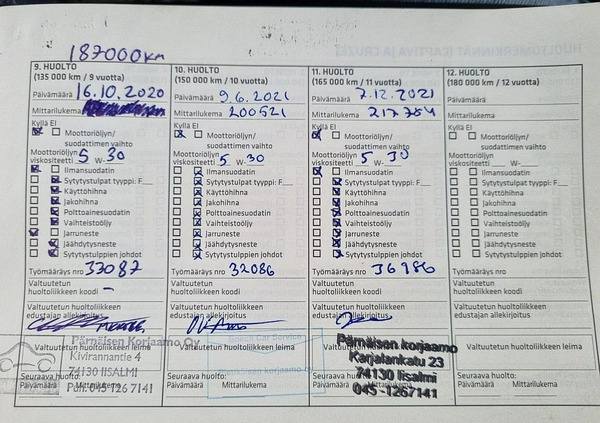 187000km
9. HUOLTO
(135 000 km / 9 vuotta)
Päivämäärä 16.10.2020
Mittarilukema
Kyllä Ei
Moottoriöljyn/
suodattimen vaihto
Moottoriöljyn
viskositeetti 5 W- 30
Ilmansuodatin
Sytytystulpat tyyppi: F
Käyttöhihna
Jakohihna
Polttoainesuodatin
Vaihteistoöljy
Jarruneste
Jäähdytysneste
Sytytystulppien johdot
Työmääräys nro 37087
Valtuutetun
huoltoliikkeen koodi -
Valtuutetun huoltoliikkeen
edustajan allekirjoitus
Valtuutetun huoltoliikkeen leima
Pärnäisen Korjaamo Oy
Kivirannantie 4
74130 IISALMI
Puh. 045 126 7141
Seuraava huolto:
Päivämäärä Mittarilukema
10. HUOLTO
(150 000 km / 10 vuotta)
Päivämäärä 9.6.2021
Mittarilukema 200521
Kyllä Ei
Moottoriöljyn/
suodattimen vaihto
Moottoriöljyn
viskositeetti 5 W- 30
Ilmansuodatin
Sytytystulpat tyyppi: F
Käyttöhihna
Jakohihna
Polttoainesuodatin
Vaihteistoöljy
Jarruneste
Jäähdytysneste
Sytytystulppien johdot
Työmääräys nro 32086
Valtuutetun
huoltoliikkeen koodi
Valtuutetun huoltoliikkeen
edustajan allekirjoitus
Valtuutetun huoltoliikkeen leima
Car Service
Seuraava huolto:
Päivämäärä Mittarilukema
11. HUOLTO
(165 000 km / 11 vuotta)
Päivämäärä 7.12.2021
Mittarilukema 217784
Kyllä Ei
Moottoriöljyn/
suodattimen vaihto
Moottoriöljyn
viskositeetti 5 W- 30
Ilmansuodatin
Sytytystulpat tyyppi: F
Käyttöhihna
Jakohihna
Polttoainesuodatin
Vaihteistoöljy
Jarruneste
Jäähdytysneste
Sytytystulppien johdot
Työmääräys nro 36986
Valtuutetun
huoltoliikkeen koodi
Valtuutetun huoltoliikkeen
edustajan allekirjoitus
Valtuutetun huoltoliikkeen leima
Pärnäisen korjaamo
Karjalankatu 23
74130 Iisalmi
045 -1267141
Seuraava huolto:
Päivämäärä Mittarilukema
12. HUOLTO
(180 000 km / 12 vuotta)
Päivämäärä
Mittarilukema
Kyllä Ei
Moottoriöljyn/
suodattimen vaihto
Moottoriöljyn
viskositeetti W-
Ilmansuodatin
Sytytystulpat tyyppi: F
Käyttöhihna
Jakohihna
Polttoainesuodatin
Vaihteistoöljy
Jarruneste
Jäähdytysneste
Sytytystulppien johdot
Työmääräys nro
Valtuutetun
huoltoliikkeen koodi
Valtuutetun huoltoliikkeen
edustajan allekirjoitus
Valtuutetun huoltoliikkeen leima
Seuraava huolto:
Päivämäärä Mittarilukema